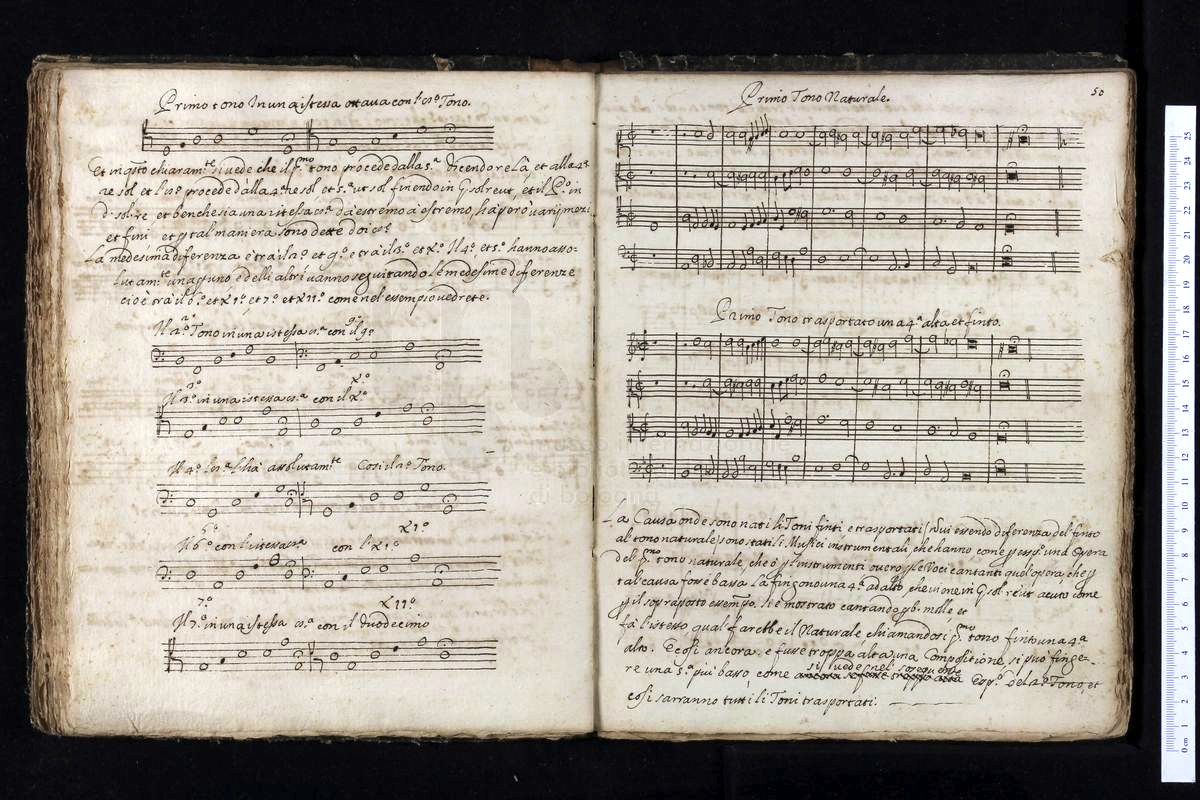 Primo tono In una istessa ottaua con l'8º Tono.
Et in q.sto chiaram.te si vede che il p.mo tono procede dalla 5.a dicendo re là et alla 4.a
re sol et l'8º procede dalla 4.a re sol et 5.a ut sol finendo in G sol re ut, et il P.º in
d sol re et benche sia una istessa 8.a da estremo a estremo, hà però varij mezi
et fini et p tal maniera sono dette doi 8.e
La medesima diferenza è trà il 2.º et 9.º e trà il 3.º et X.º Il 4.º et 5.º hanno asso-
lutam.te una p uno e delli altri vanno seguitando le medesime diferenze
cioè trà il 6.º et XIº, et 7.º et XIIº. come nel essempio vedrete.
Il 2.º Tono in una istessa 8.a con il 9º
Il 3.º in una istessa 8.a con il Xº
Il 4.º la 8.a l'hà assolutam.te Cosi il 5.º Tono.
Il 6.º con l'istessa 8.a con l' XIº
Il 7.º in una istessa 8.a con il Duodecimo
XIIº
50
Primo Tono Naturale.
Primo Tono trasportato una 4.a alta et finto.
La Causa onde sono nati li Toni finti e trasportati (Nui essendo diferenza del finto
al tono naturale) sono stati li Musici instrumentali, che hanno come p essp.º una Opera
del P.mo tono naturale, che ò p l'instrumenti ouero p le Voci cantanti quel'opera, che p
tal causa fosse bassa la fingono una 4.a ad alto, che viene in G sol re ut acuto come
p il sopraposto essempio. si è mostrato cantando p b. molle, et
fà l'istesso qual farebbe il Naturale chiamandosi p.mo tono finto una 4.a
alto. E cosi ancora, e fusse troppa alta una Compositione, si può finge-
re una 5.a più basso, come si vede nel soseguente Esp.º del 2.º Tono, et
cosi sarranno tutti li Toni trasportati.